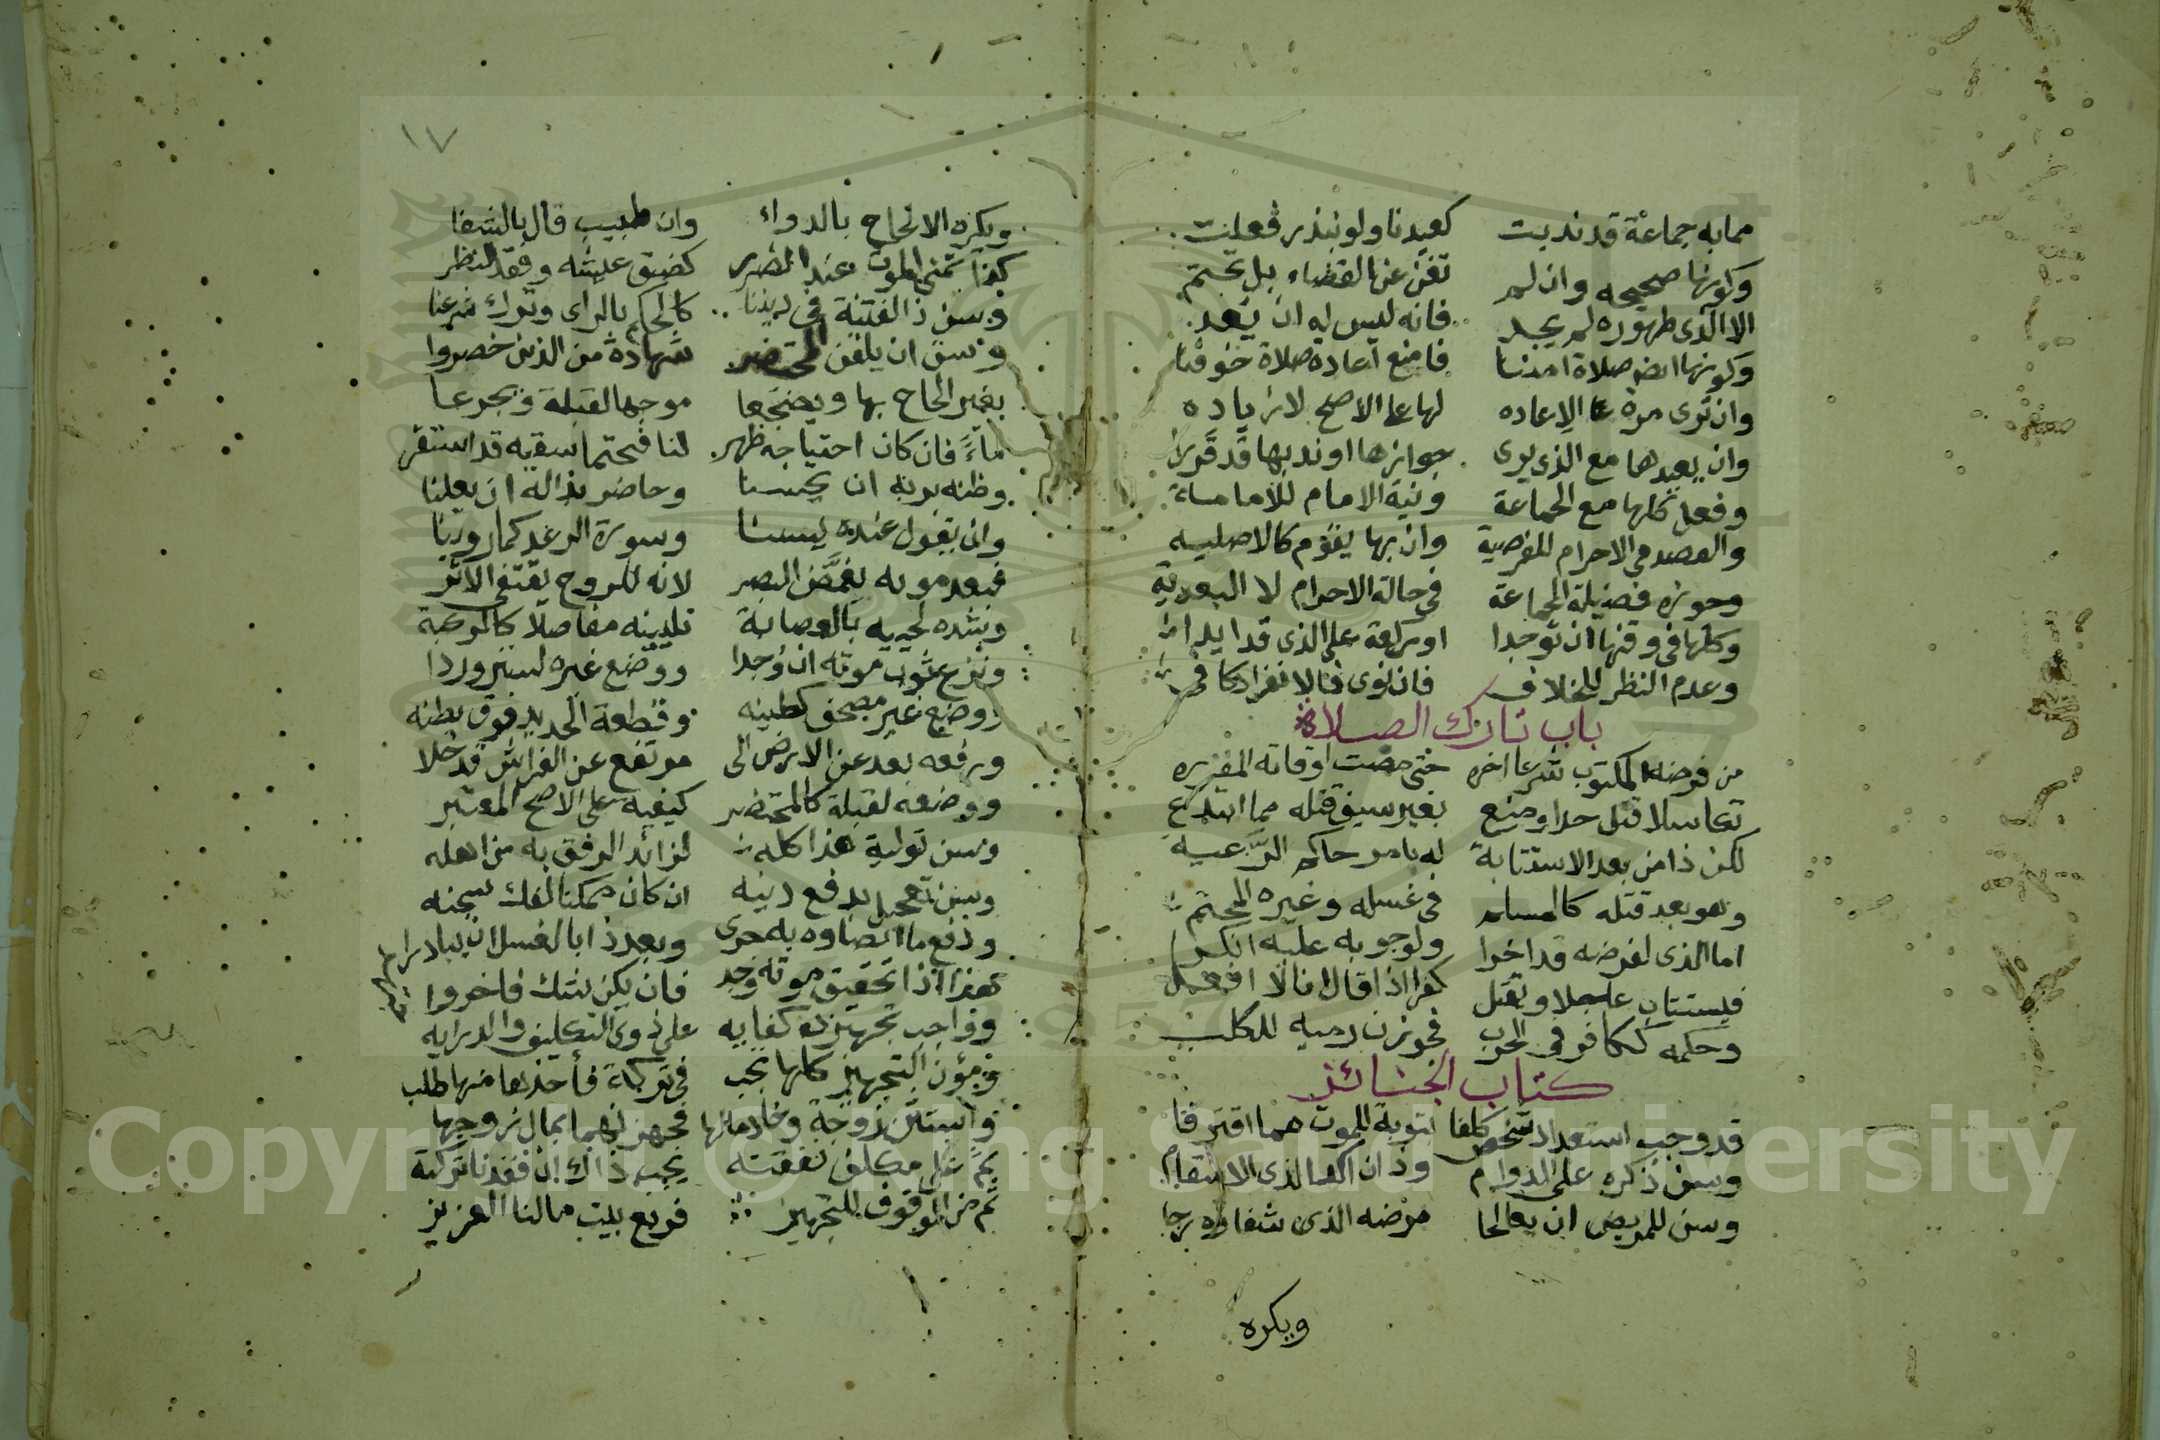 مما به جماعة قد ندبت كعيدنا ولو بنذر فعلت
وكونها صحيحه وان لم تغن عن القضاء بل تحتم
الا الذى طهوره لم يجد فانه ليس له ان يعد
وكونها صلاة امننا فامنع اعادة صلاة خوفنا
وان ترى مرة الاعاده لها على الاصح لا زياده
وان يعيدها مع الذى يرى جوازها او ندبها قد قررا
وفعل كلها مع الجماعة ونية الامام للامامة
والقصد فى الاحرام للفرضية وان بها يقوم كالاصليه
وحوزه فضيلة الجماعة فى حالة الاحرام لا البعدية
وكلها فى وقتها ان توجدا او ركعة على الذى قد ايدا
وعدم النظر للخلاف فان نوى فالانفراد كافى
باب تارك الصلاة
من فرضه المكتوب شرعا اخره حتى مضت اوقاته المقرره
تكاسلا قتل حدا وضع بغير سيف قتله مما ابتدع
لكن ذا من بعد الاستتابة له بامر حاكم الرعية
وهو بعد قتله كالمسلم فى غسله وغيره المحتم
اما الذى لفرضه قد اخرا ولوجوبه عليه انكرا
فيستتاب عاجلا ويقتل كفرا اذا قال انا لا افعل
وحكمه ككافر فى الحرب فجوزن رميه للكلب
كتاب الجنائز
قد وجب استعداد شخص كلفا بتوبة للموت مما اقترفا
وسن ذكره على الدوام وذان اكد الذى الاسقام
وسن للمريض ان يعالجا مرضه الذى شفاؤه رجا
ويكره
١٧
ويكره الالحاح بالدواء وان طبيب قال بالشفا
كذا تمنى الموت عند الضرر كضيق عيشه وفقد النظر
وسن ذا لفتنة فى ديننا كالحكم بالراى وترك شرعنا
وسن ان يلقن المحتضر شهادة من الذين حضروا
بغير الحاح بها ويضجعا موجها لقبلة ويجرعا
ماء فان كان احتياجه ظهر لنا فحتما سقيه قد استقر
وظنه بربه ان يحسنا وحاضر بذا له ان يعلنا
وان يقول عنده يسسنا وسورة الرعد كما روينا
فبعد موته يغمض البصر لانه للروح يقتفى الاثر
وبشده لحييه بالعصابة تليينه مفاصلا كالركبة
ونزع ثوب موته ان وجدا ووضع غيره لستر وردا
ووضع غير مصحف كطينه وقطعة الحديد فوق بطنه
ورفعه بعد عن الارض الى مرتفع عن الفراش قد خلا
ووضعه لقبلة كالمحتضر كيفية على الاصح المعتبر
وسن تولية هذا كله لزائد الرفق به من اهله
وسن تعجيل بدفع دينه ان كان ممكنا لفك سجنه
ودفع ما ايصاوه به جرى وبعد ذا بالغسل ان يبادرا
هذا اذا تحقيق موته وجد فان يكن شك فاخروا
وواجب تجهيزه كفايه على ذوى التكليف والدرايه
ومؤن التجهيز كلها تجب فى تركة فأخذها منها طلب
واستثن زوجة وخادما لها فجهزنهما بمال زوجها
ثم على مكلف نفقته يجب ذاك ان فقدنا تركته
ثم من الموقوف للتجهيز فربع بيت مالنا العزيز